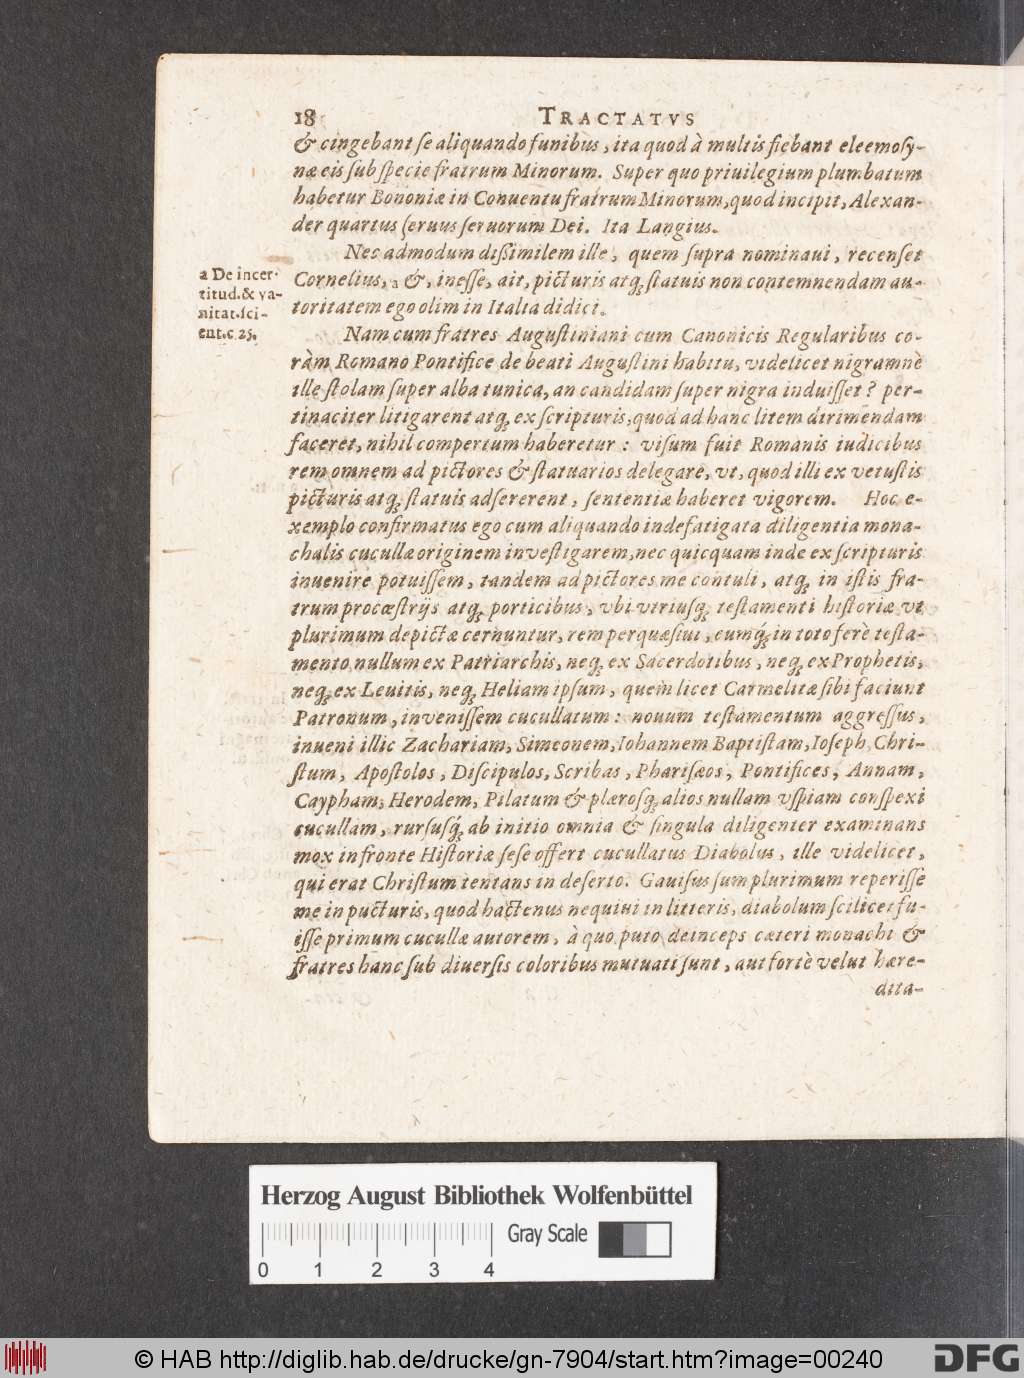 18 TRACTATVS
& cingebant ſe aliquando funibus, ita quod à multis fiebant eleemoſy-
næ eis ſub ſpecie fratrum Minorum. Super quo priuilegium plumbatum
habetur Bononiæ in Conuentu fratrum Minorum, quod incipit, Alexan-
der quartus ſeruus ſeruorum Dei. Ita Langius.
Nec admodum dißimilem ille, quem ſupra nominaui, recenſet
a De incer-
titud. & va-
nitat. ſci-
ent. c. 25.
Cornelius, a &, ineſſe, ait, picturis atq; ſtatuis non contemnendam au-
toritatem ego olim in Italia didici.
Nam cum fratres Auguſtiniani cum Canonicis Regularibus co-
ràm Romano Pontifice de beati Auguſtini habitu, videlicet nigramnè
ille ſtolam ſuper alba tunica, an candidam ſuper nigra induiſſet? per-
tinaciter litigarent atq; ex ſcripturis, quod ad hanc litem dirimendam
faceret, nihil compertum haberetur: viſum fuit Romanis iudicibus
rem omnem ad pictores & ſtatuarios delegare, vt, quod illi ex vetuſtis
picturis atq; ſtatuis adſererent, ſententiæ haberet vigorem. Hoc e-
xemplo confirmatus ego cum aliquando indefatigata diligentia mona-
chalis cucullæ originem inveſtigarem, nec quicquam inde ex ſcripturis
inuenire potuiſſem, tandem ad pictores me contuli, atq; in iſtis fra-
trum procœſtrijs atq; porticibus, vbi vtriuſq; teſtamenti hiſtoriæ vt
plurimum depictæ cernuntur, rem perquæſiui, cumq́; in toto ferè teſta-
mento nullum ex Patriarchis, neq; ex Sacerdotibus, neq; ex Prophetis,
neq; ex Leuitis, neq; Heliam ipſum, quem licet Carmelitæ ſibi faciunt
Patronum, inveniſſem cucullatum: nouum teſtamentum aggreſſus,
inueni illic Zachariam, Simeonem, Iohannem Baptiſtam, Ioſeph, Chri-
ſtum, Apoſtolos, Diſcipulos, Scribas, Phariſæos, Pontifices, Annam,
Caypham, Herodem, Pilatum & plæroſq; alios nullam vſpiam conſpexi
cucullam, rurſuſq́; ab initio omnia & ſingula diligenter examinans
mox in fronte Hiſtoriæ ſeſe offert cucullatus Diabolus, ille videlicet,
qui erat Chriſtum tentans in deſerto. Gauiſus ſum plurimum reperiſſe
me in picturis, quod hactenus nequiui in litteris, diabolum ſcilicet fu-
iſſe primum cucullæ autorem, à quo puto deinceps cæteri monachi &
fratres hanc ſub diuerſis coloribus mutuati ſunt, aut fortè velut hære-
dita-
Herzog August Bibliothek Wolfenbüttel
Gray Scale
0 1 2 3 4
© HAB http://diglib.hab.de/drucke/gn-7904/start.htm?image=00240
DFG